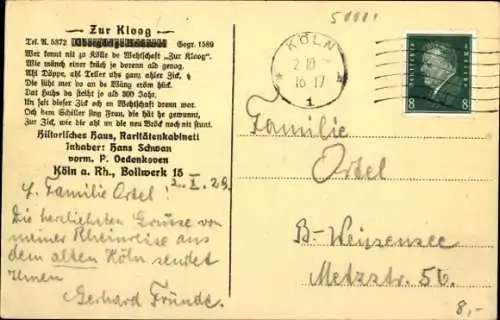 Zur Kloog
50001
Tel. A. 5372
Gegr. 1589
Wer kennt nit zo Kölle de Wehtschaft „Zur Kloog".
Wie mänch einer krüch je dorenn ald genog.
Ahl Döppe, ahl Teller uns ganz ahler Zick,
Die sühht mer do an de Wäng eröm
Dat Huhs do steiht je ald 300 Johr.
Un seit dieser Zick och en Wehtschaft drenn wor.
Och dem Schiller sing Frau, die hät he gewunnt,
Zur Zick, wie die ahl un die neu Bröck noch nit stunt.
Historisches Haus, Raritätenkabinett
Inhaber: Hans Schwan
vorm. P. Oedenkoven
Köln a. Rh., Bollwerk 15
KÖLN
2.10
16-17
1
DEUTSCHES REICH
8 8
2. X. 29.
L. Familie Ortel!
Die herzlichsten Grüsse von
meiner Rheinreise aus
dem alten Köln sendet
Ihnen
Gerhard Fründe.
Familie
Ortel
B-Weissensee
Metzstr. 56.
8,-